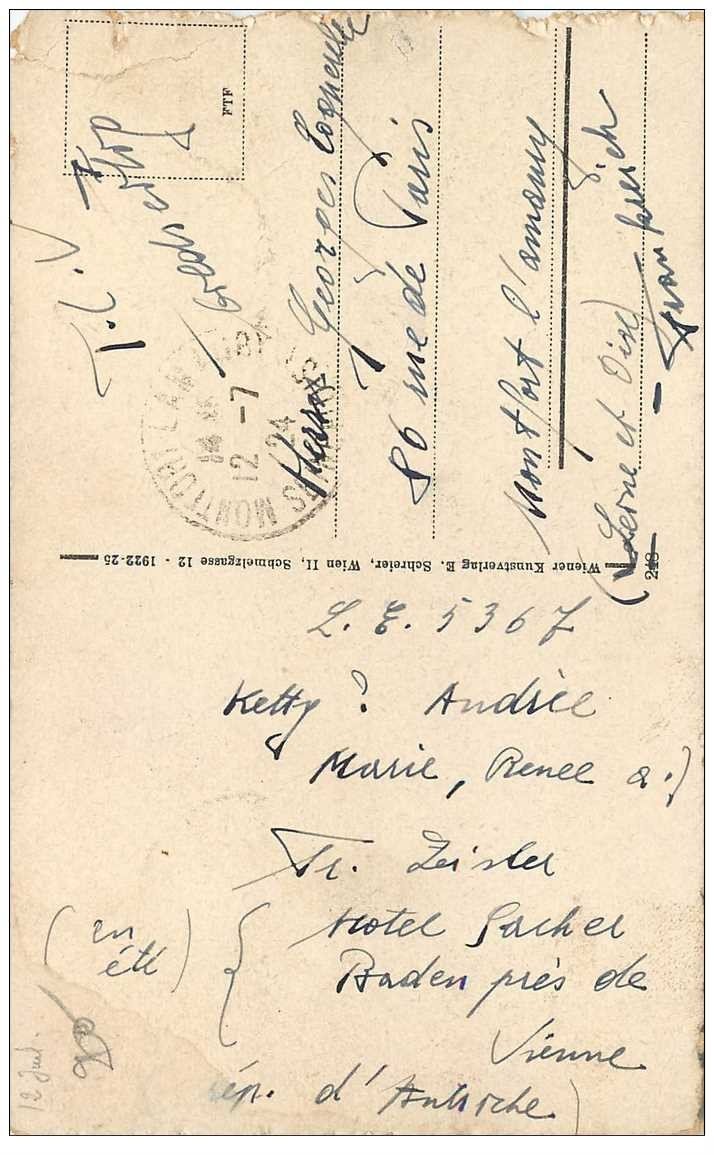 FTF
T. C. V
Georges
86 rue de Paris
Montfort l'amaury
(Seine et Oise)
Frankreich
MONTFORT L'AMAURY
12 - 7
24
Wiener Kunstverlag E. Schreier, Wien II, Schmelzgasse 12 - 1922-25
218
L. E. 5367
Ketty ? Andrée
Marie, Renee a.)
Fr. Zeisler
(en été) { Hotel Sacher
Baden près de
Vienne
rép. d'Autriche)
12 Juil.